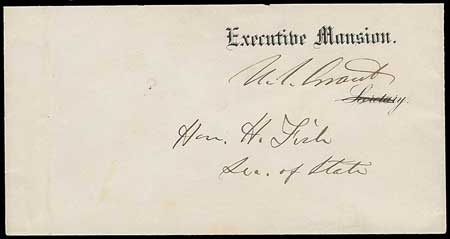 Executive Mansion.
U.S. Grant
Secretary.
Hon. H. Fish
Sec. of State